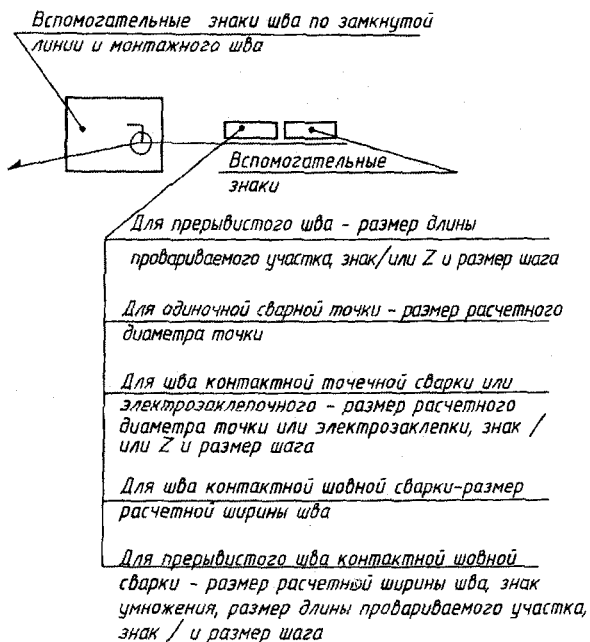 Вспомогательные знаки шва по замкнутой
линии и монтажного шва
Вспомогательные
знаки
Для прерывистого шва - размер длины
провариваемого участка, знак/или Z и размер шага
Для одиночной сварной точки - размер расчетного
диаметра точки
Для шва контактной точечной сварки или
электрозаклепочного - размер расчетного
диаметра точки или электрозаклепки, знак /
или Z и размер шага
Для шва контактной шовной сварки-размер
расчетной ширины шва
Для прерывистого шва контактной шовной
сварки - размер расчетной ширины шва, знак
умножения, размер длины провариваемого участка,
знак / и размер шага